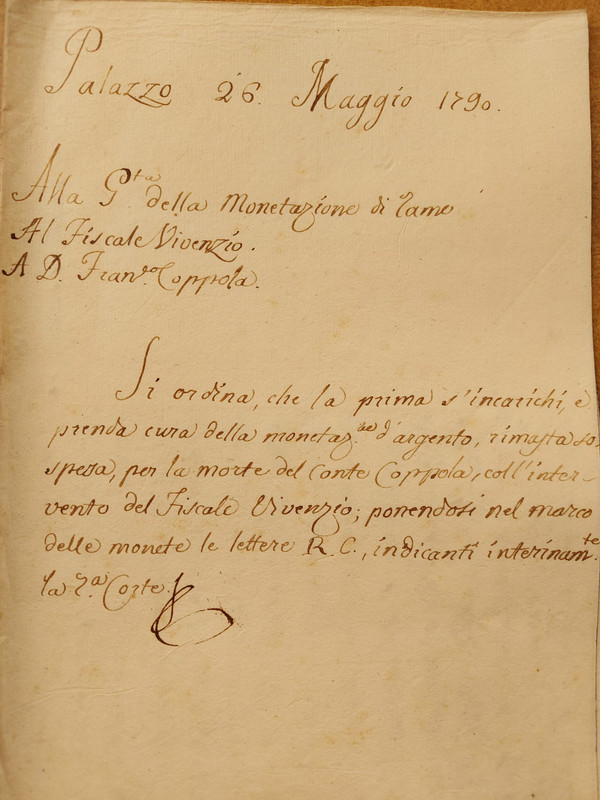 Palazzo 26. Maggio 1790.
Alla G.ta della Monetazione di rame
Al Fiscale Vivenzio.
A D. Fran.co Coppola.
Si ordina, che la prima s'incarichi, e
prenda cura della monetaz.ne d'argento, rimasta so
spesa, per la morte del Conte Coppola, coll'inter-
vento del Fiscale Vivenzio; ponendosi nel marco
delle monete le lettere R. C., indicanti interinam.te
la R.a Corte.